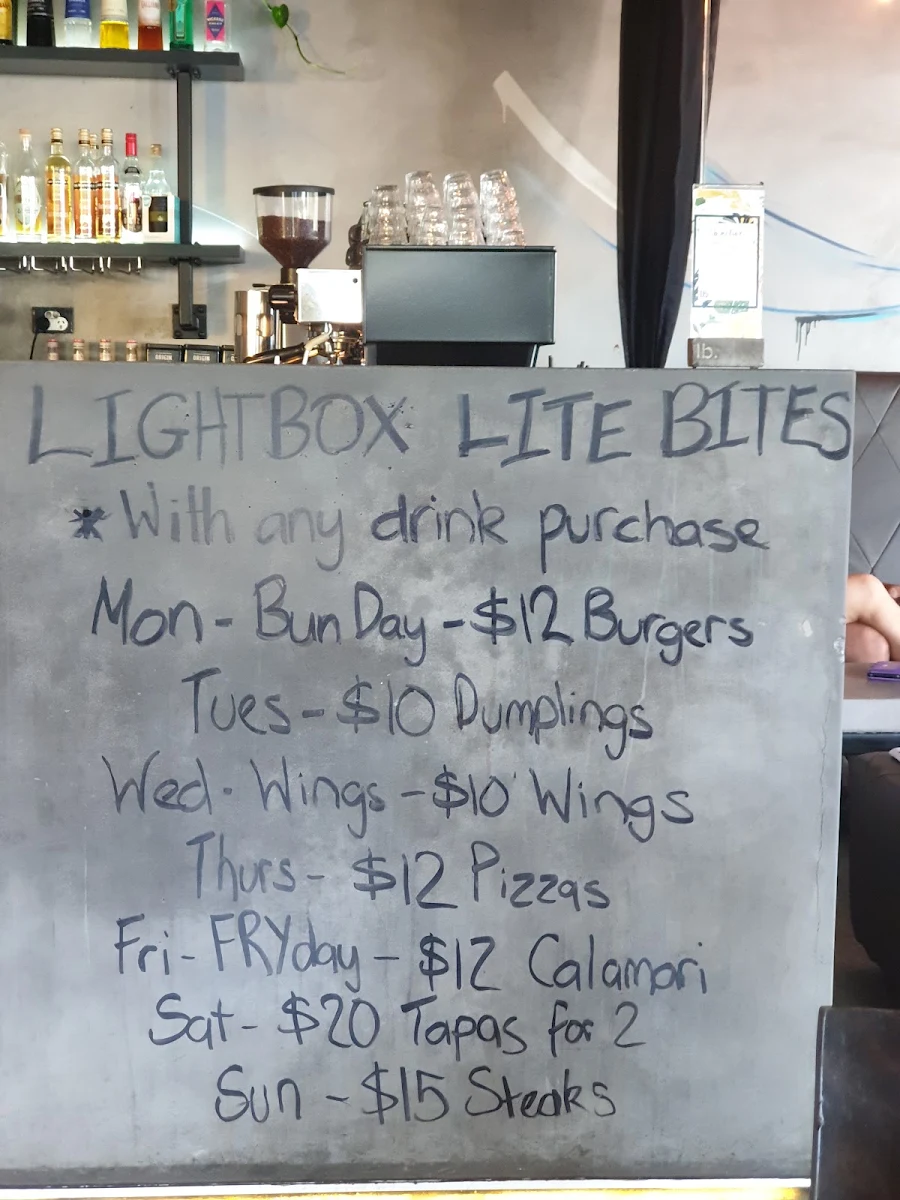 lb.
LIGHTBOX LITE BITES
*With any drink purchase
Mon - Bun Day - $12 Burgers
Tues - $10 Dumplings
Wed - Wings - $10 Wings
Thurs - $12 Pizzas
Fri - FRYday - $12 Calamari
Sat - $20 Tapas for 2
Sun - $15 Steaks